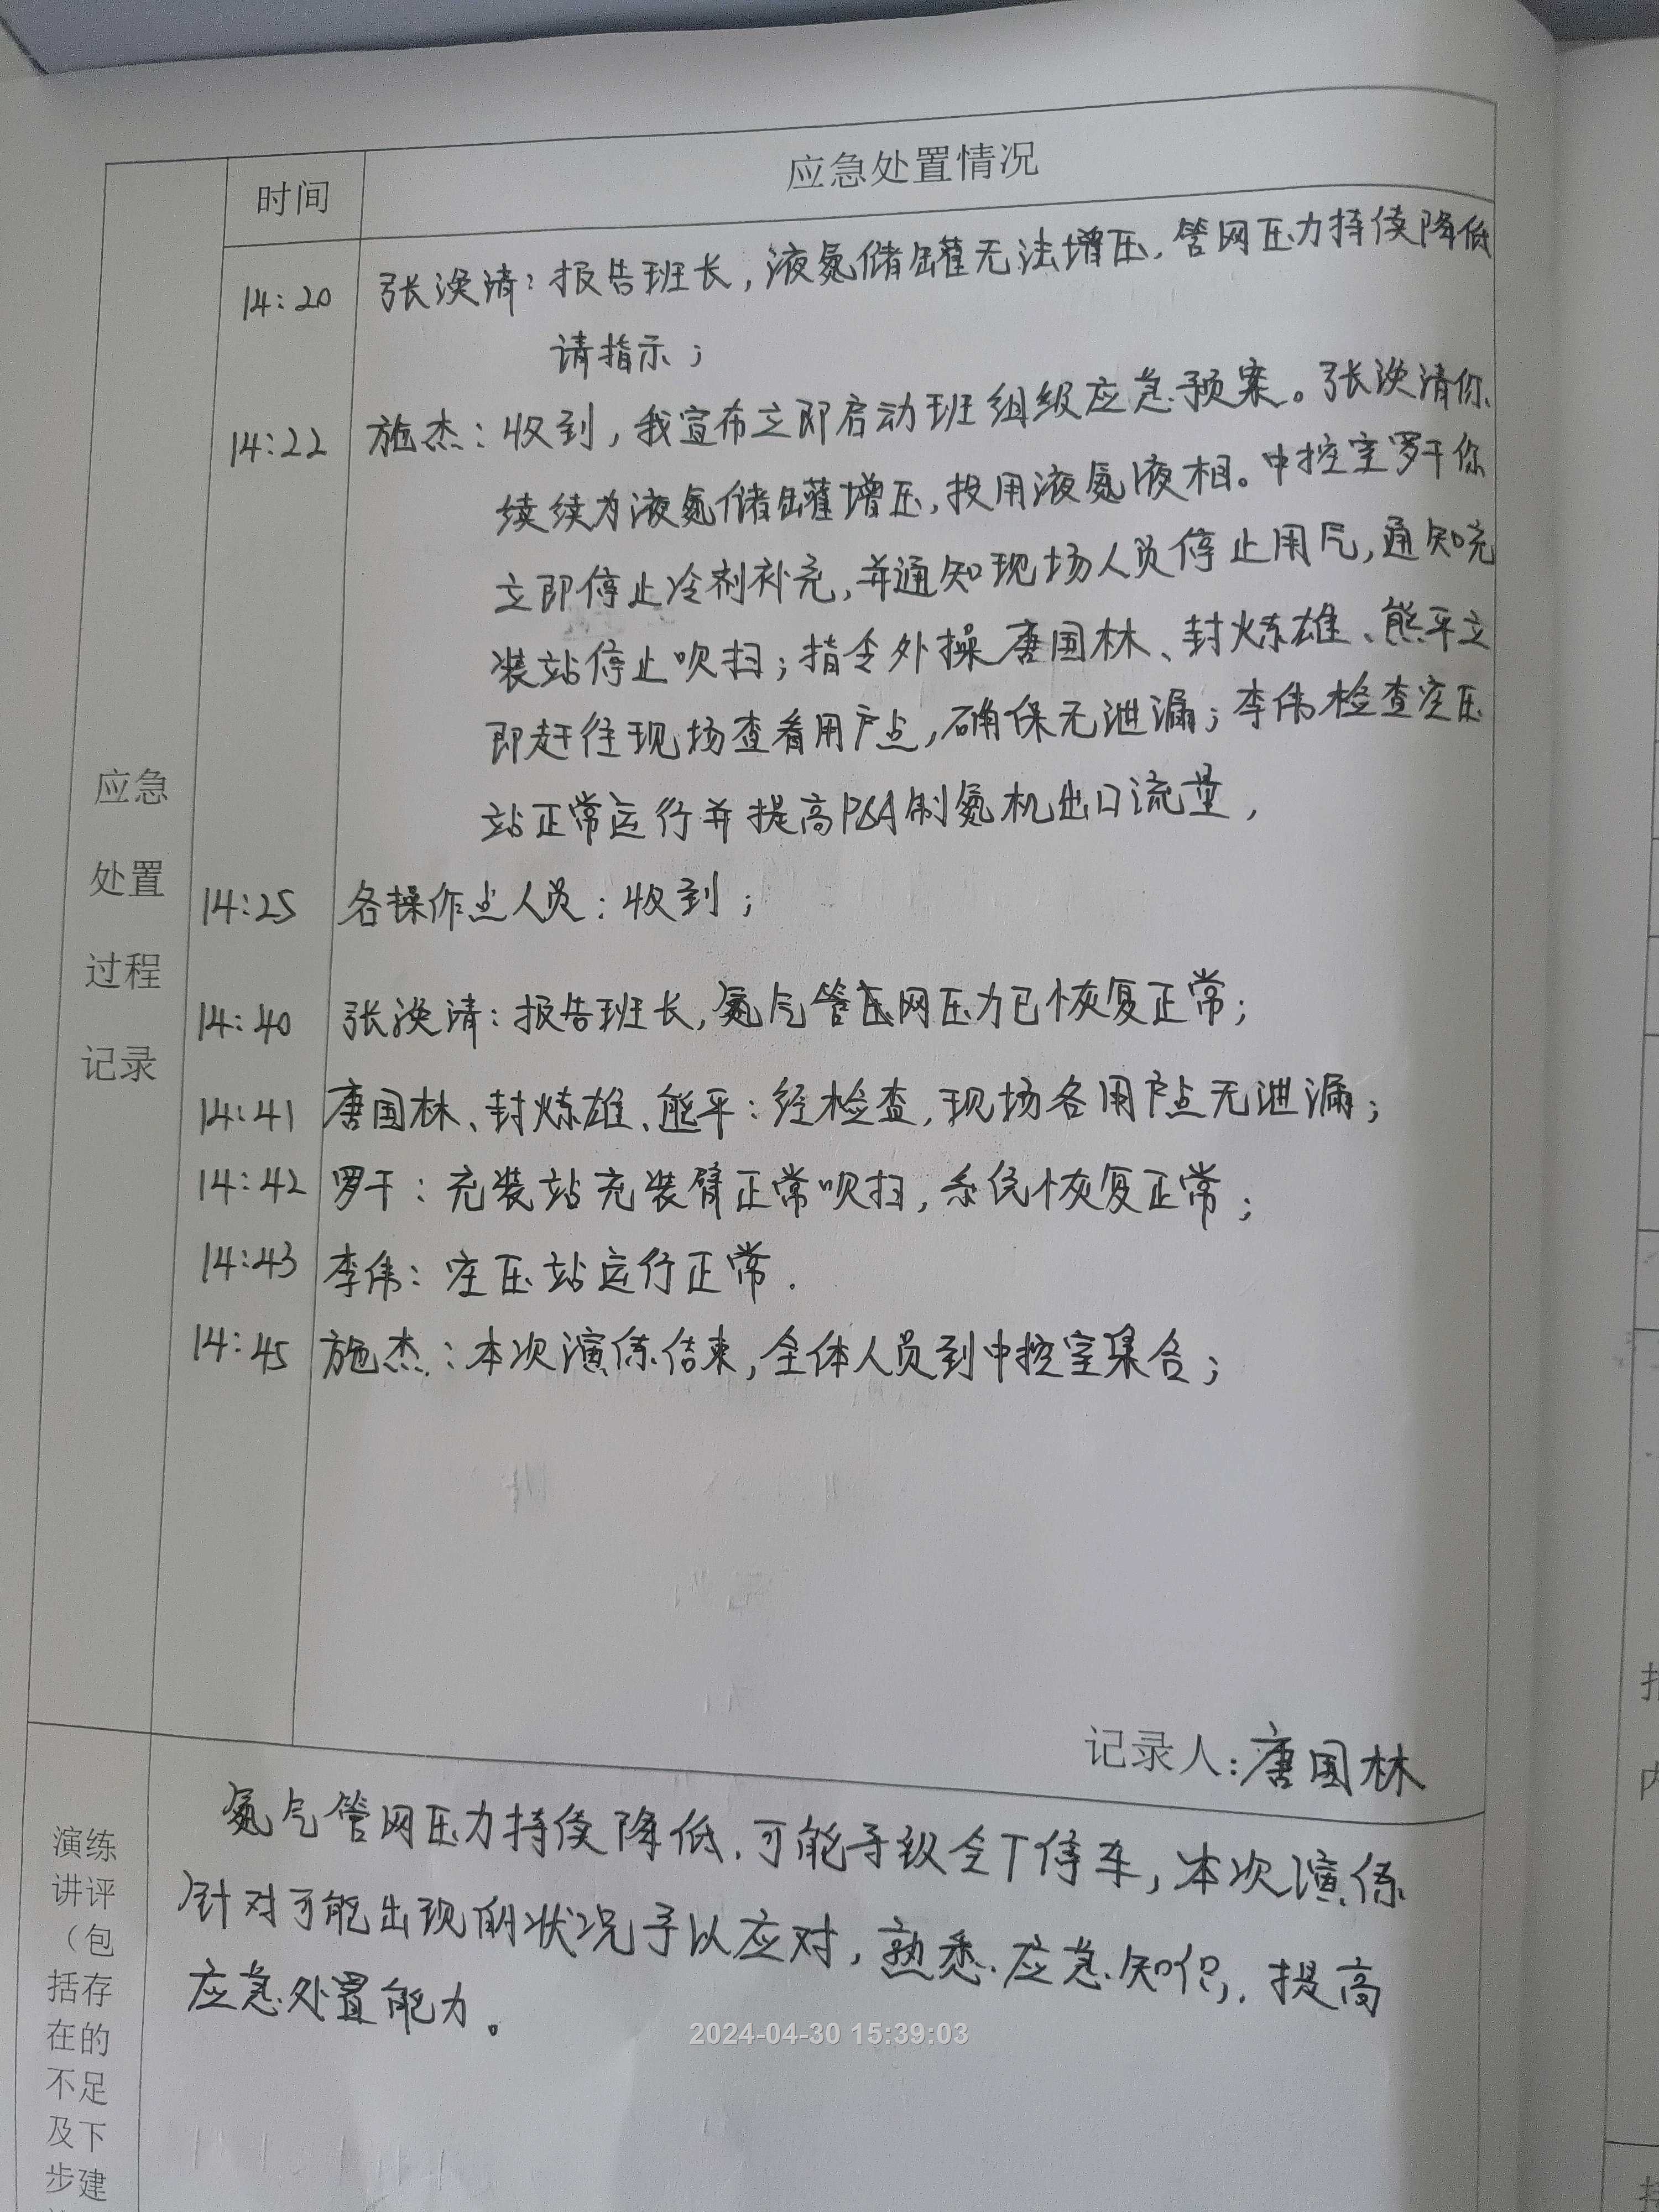 时间
应急处置情况
14:20
张涣清：报告班长，液氮储罐无法增压，管网压力持续降低
请指示；
14:22
施杰：收到，我宣布立即启动班组级应急预案。张涣清你
续续为液氮储罐增压，投用液氮液相。中控室罗干你
立即停止冷剂补充，并通知现场人员停止用气，通知充
装站停止吹扫；指令外操唐国林、封炼雄、熊平立
即赶往现场查看用户点，确保无泄漏；李伟检查空压
站正常运行并提高PSA制氮机出口流量，
14:25
各操作点人员：收到；
14:40
张涣清：报告班长，氮气管压网压力已恢复正常；
14:41
唐国林、封炼雄、熊平：经检查，现场各用户点无泄漏；
14:42
罗干：充装站充装臂正常吹扫，系统恢复正常；
14:43
李伟：空压站运行正常.
14:45
施杰：本次演练结束，全体人员到中控室集合；
应急
处置
过程
记录
记录人：唐国林
演练
讲评
（包
括存
在的
不足
及下
步建
氮气管网压力持续降低，可能导致全厂停车，本次演练
针对可能出现的状况予以应对，熟悉应急知识，提高
应急处置能力。
2024-04-30 15:39:03